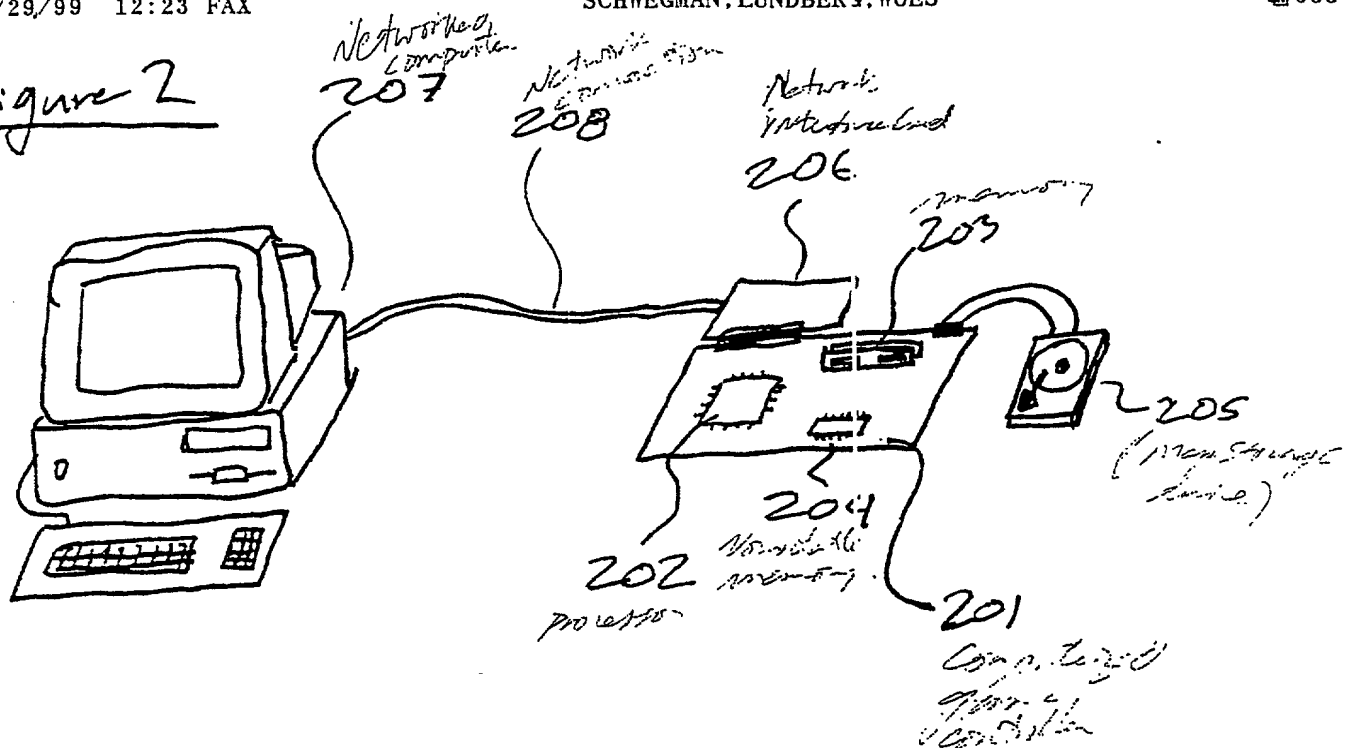 /29/99 12:23 FAX
SCHWEGMAN, LUNDBERG, WOES
igure 2
Networked
computer
207
Network
208
Network
206
memory
203
205
(Mass Storage
204
Nonvolatile
memory
202
processor
201
Computerized
controller